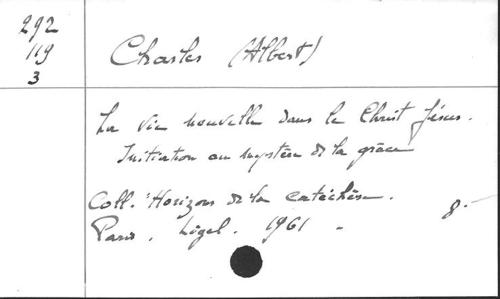 292
119
3
Charles (Albert)
La vie nouvelle dans le Christ Jésus.
Initiation au mystère de la grâce
Coll. "Horizons de la catéchèse.
8°
Paris. Ligel. 1961 -